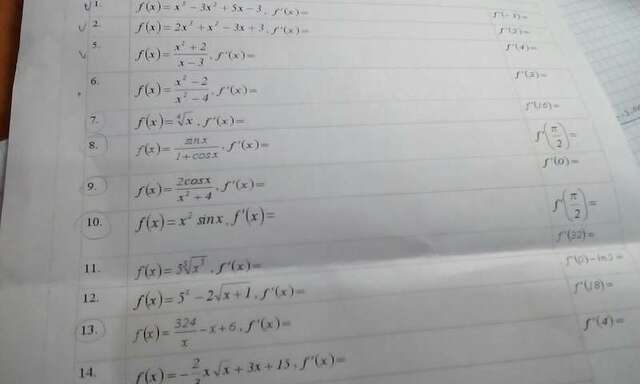 1. f(x)= x³ − 3x² + 5x − 3, f'(x)=
2. f(x)= 2x³ + x² − 3x + 3, f'(x)= f'(2)=
5. f(x)= (x² + 2)/(x − 3), f'(x)= f'(4)=
6. f(x)= (x² − 2)/(x² − 4), f'(x)=
7. f(x)= ⁴√x, f'(x)= f'(16)=
8. f(x)= sinx/(1+cosx), f'(x)= f'(π/2)=
9. f(x)= 2cosx/(x² + 4), f'(x)= f'(0)=
10. f(x)= x² sinx, f'(x)= f'(π/2)=
11. f(x)= 5⁵√x³, f'(x)= f'(32)=
12. f(x)= 5ˣ − 2√x+1, f'(x)= f'(0)−ln5=
13. f(x)= 324/x − x + 6, f'(x)= f'(18)=
14. f(x)= −2/3 x√x + 3x + 15, f'(x)= f'(4)=